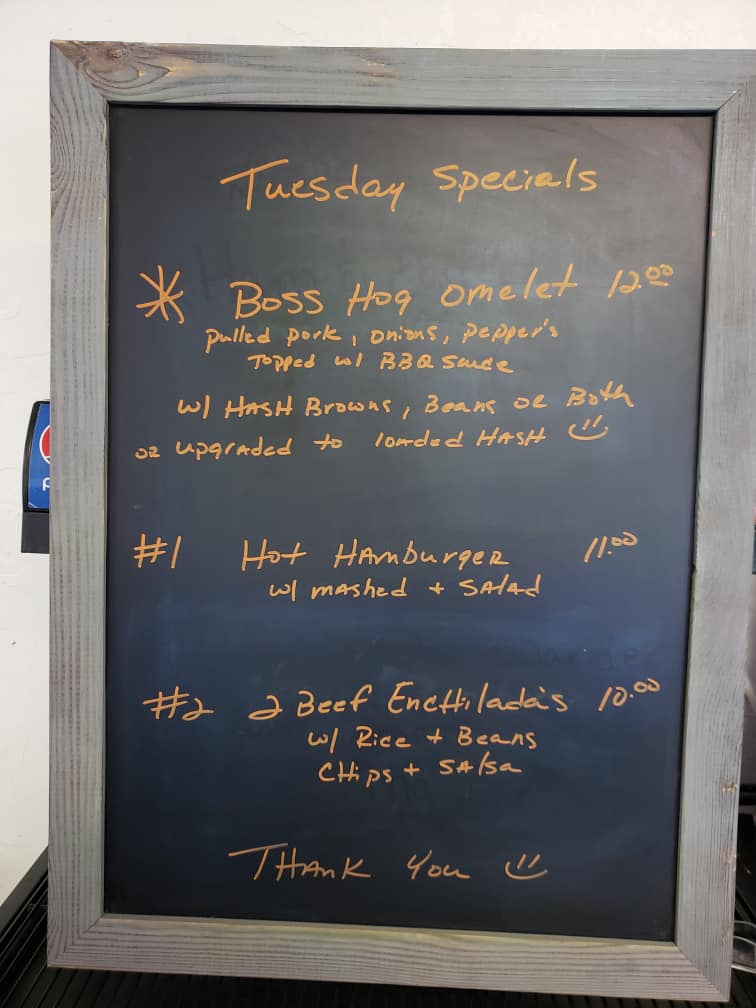 Tuesday Specials
* Boss Hog omelet 12.00
pulled pork, onions, pepper's
Topped w/ BBQ Sauce
w/ HASH Browns, Beans or Both
or upgraded to loaded HASH
#1 Hot HAmburger 11.00
w/ mashed + SALAD
#2 2 Beef EncHiladas's 10.00
w/ Rice + Beans
CHips + SAlsa
THANK You